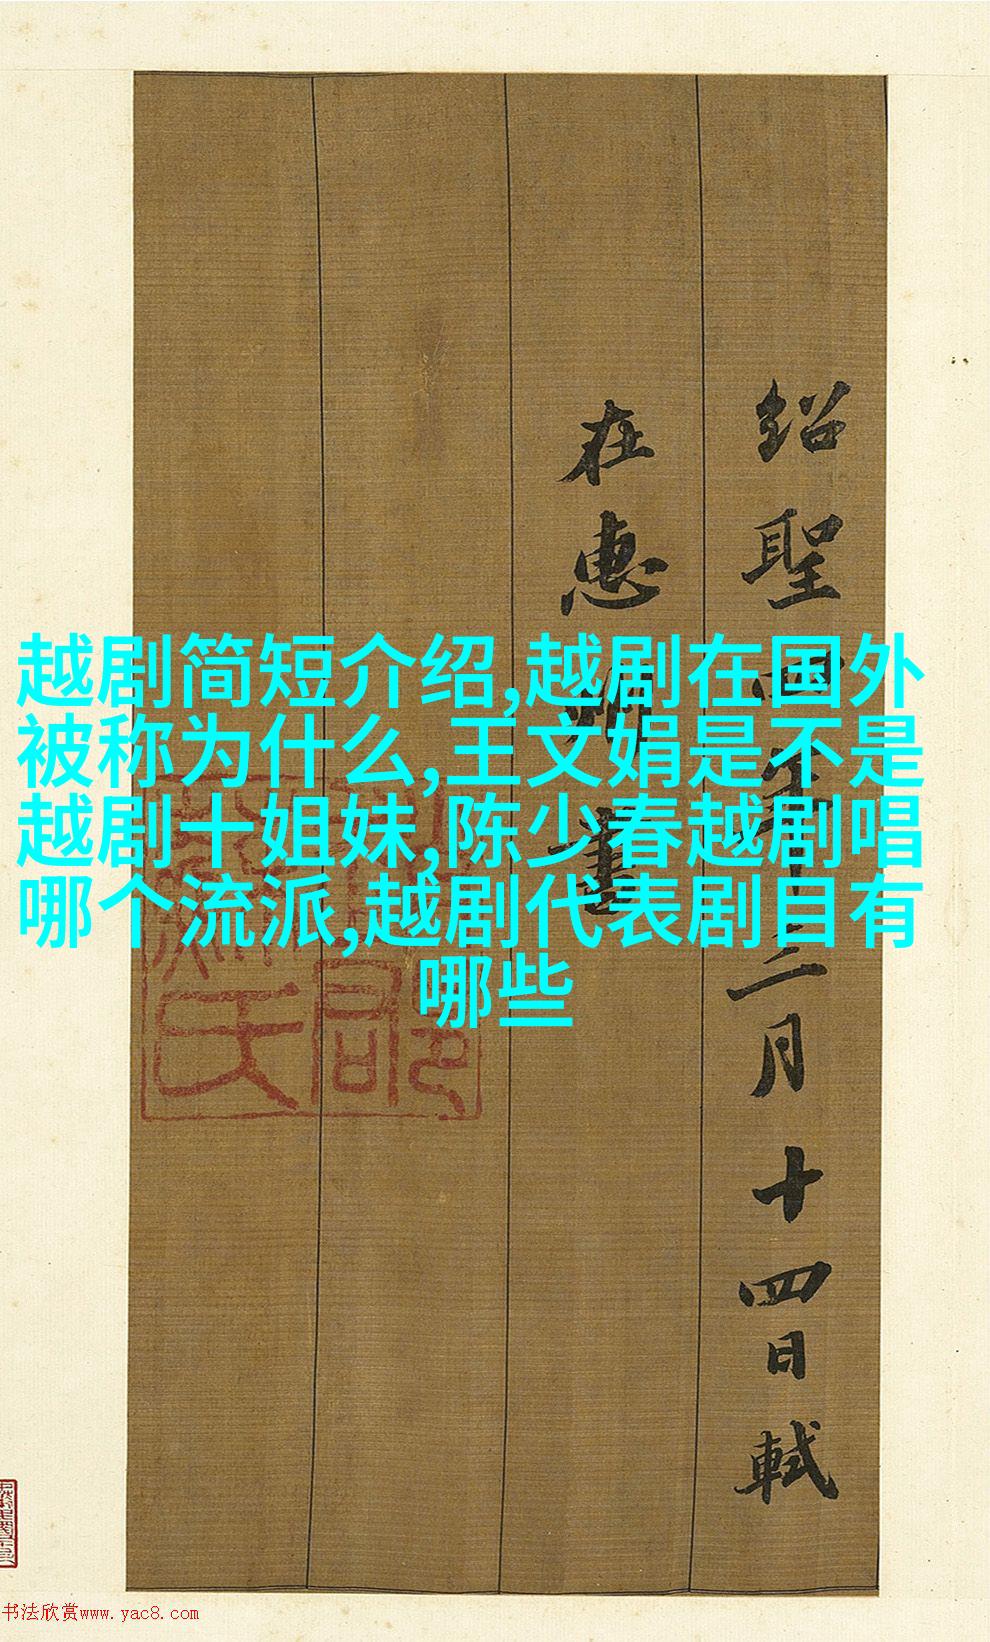 越剧简短介绍,越剧在国外
被称为什么,王文娟是不是
越剧十姐妹,陈少春越剧唱
哪个流派,越剧代表剧目有
哪些
绍聖二年十二月十四日軾
在惠州書
书法欣赏www.yac8.com